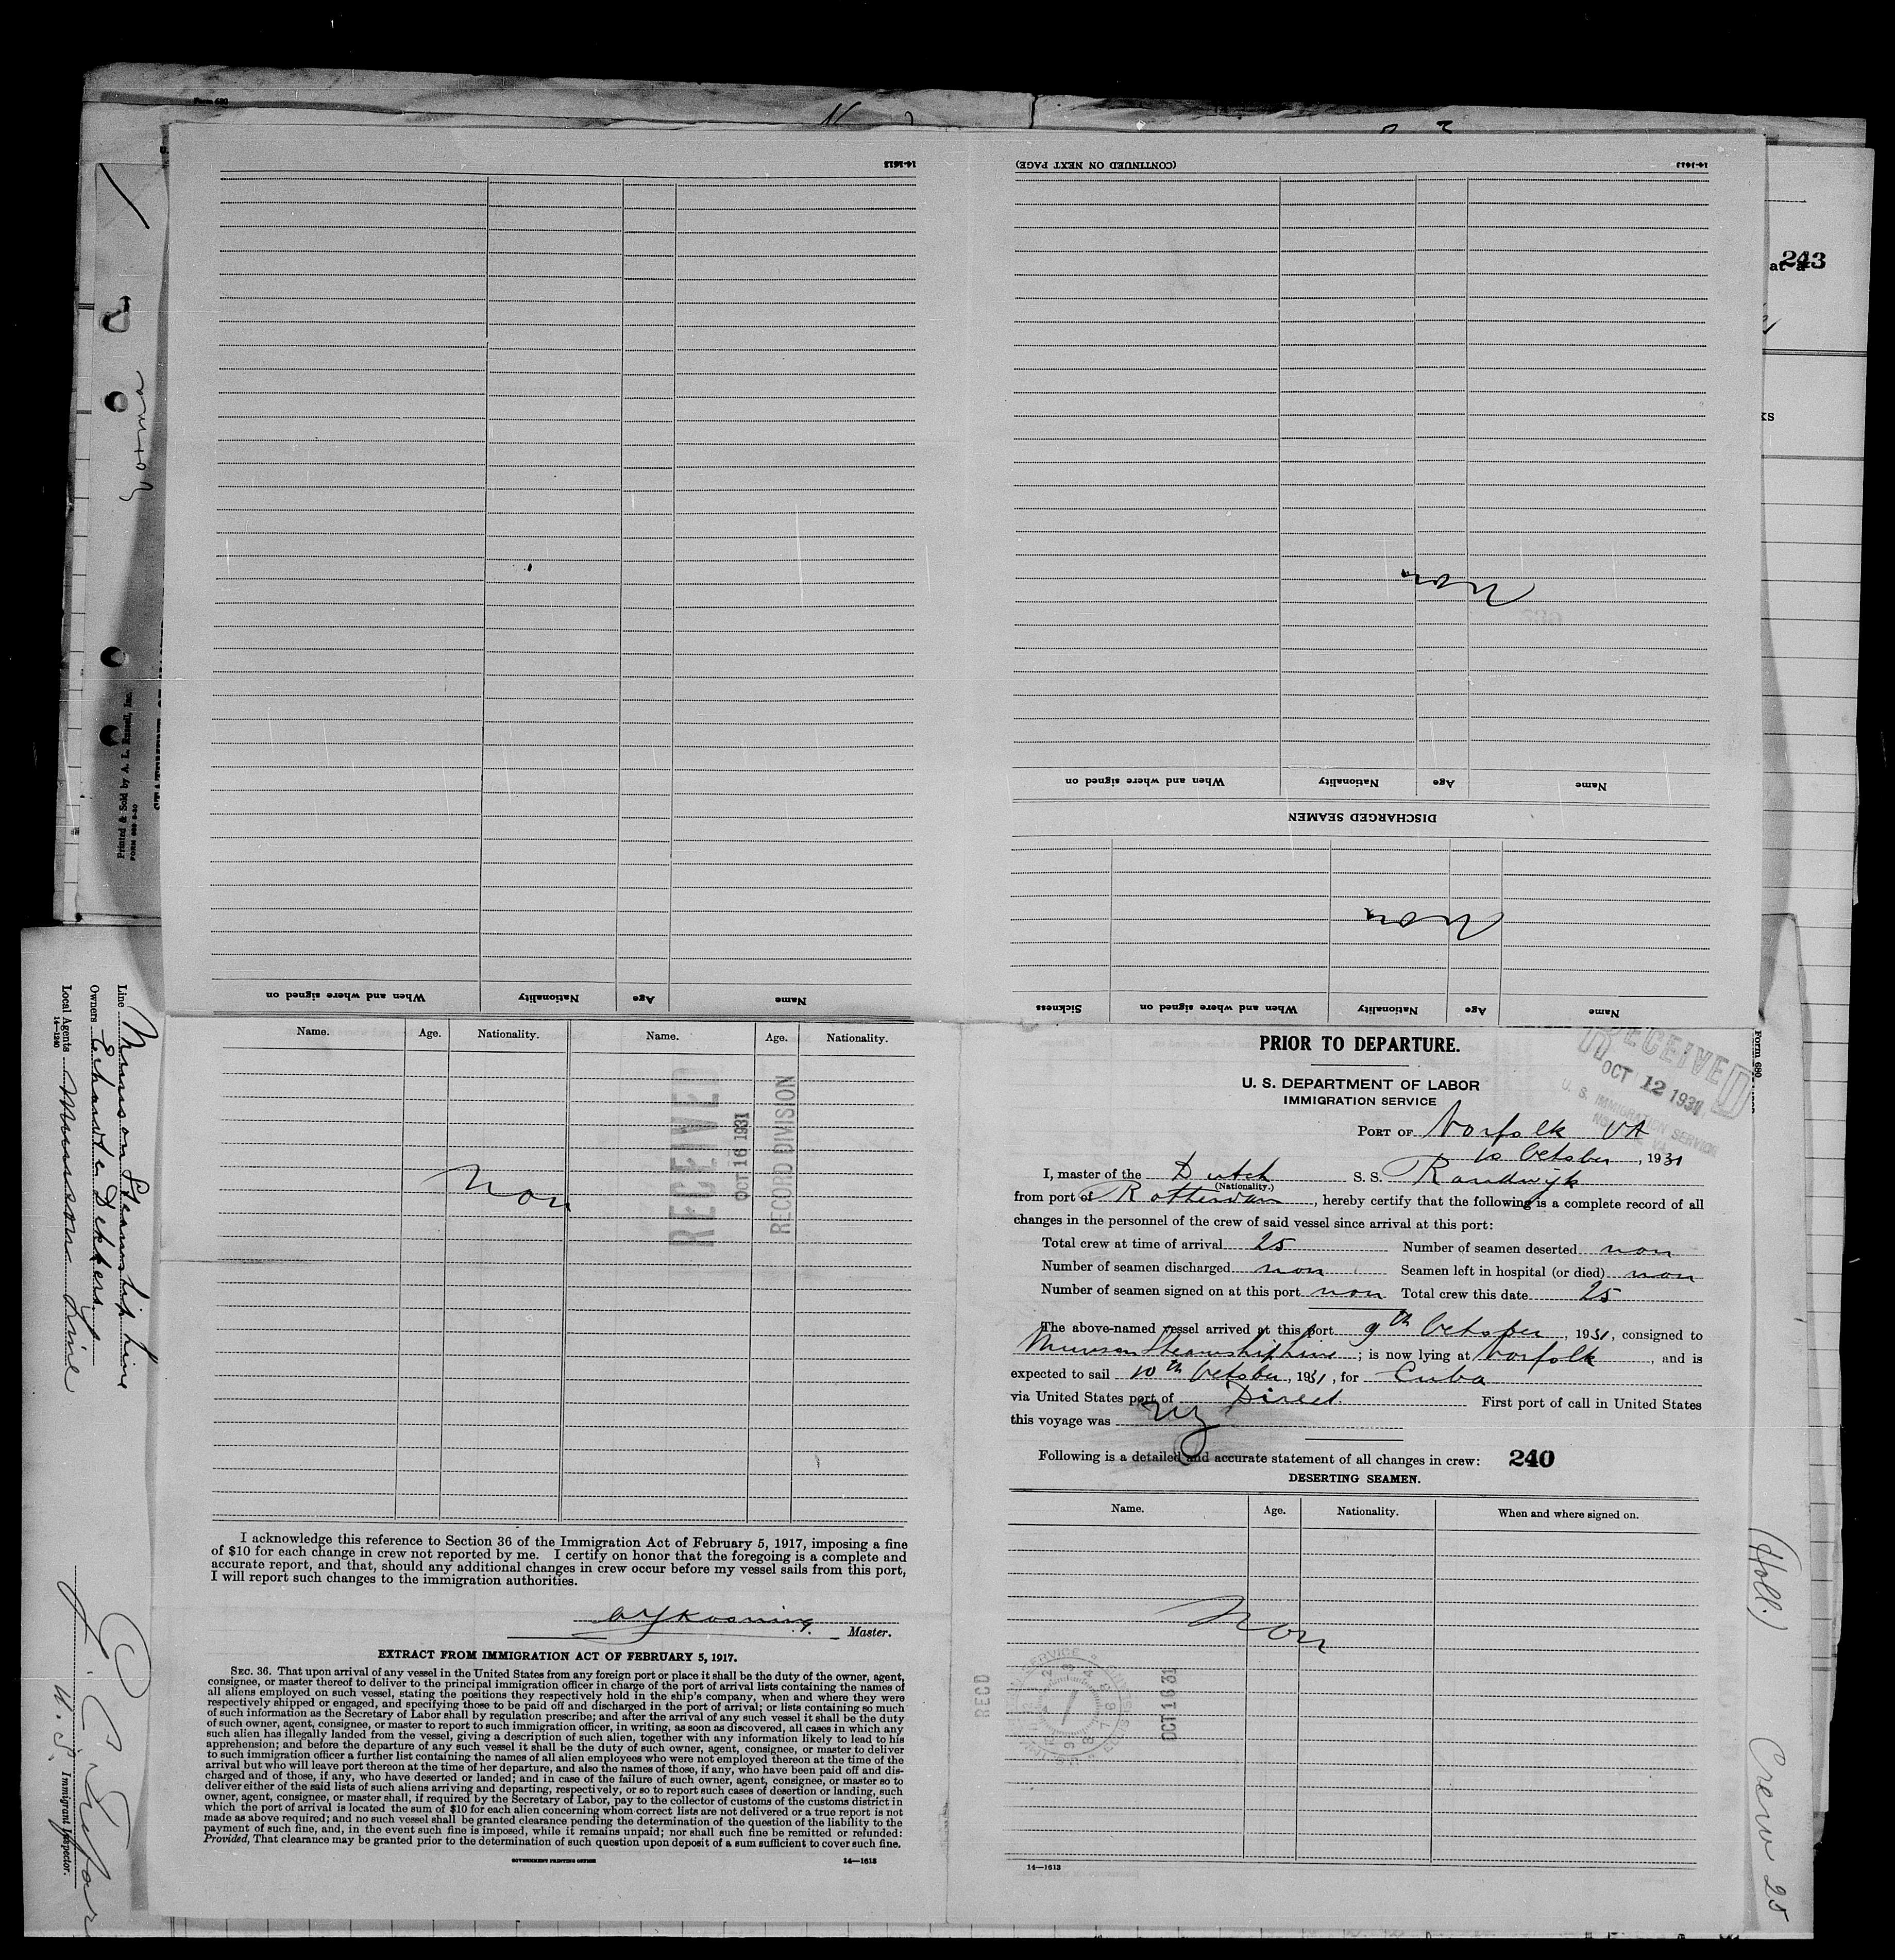 Form 680
14-1613
(CONTINUED ON NEXT PAGE)
14-1613
243
at a
Norma
Printed & Sold by A. L. Russell, Inc.
non
Name
Age
Nationality
When and where signed on
DISCHARGED SEAMEN
non
Name
Age
Nationality
When and where signed on
Sickness
Name
Age
Nationality
When and where signed on
Line Munson Steamship Line
Owners Erhardt & Dekkers
Local Agents Munson Line
14-1240
Name. Age. Nationality. Name. Age. Nationality.
RECEIVED
OCT 16 1931
RECORD DIVISION
Non
I acknowledge this reference to Section 36 of the Immigration Act of February 5, 1917, imposing a fine
of $10 for each change in crew not reported by me. I certify on honor that the foregoing is a complete and
accurate report, and that, should any additional changes in crew occur before my vessel sails from this port,
I will report such changes to the immigration authorities.
Master.
EXTRACT FROM IMMIGRATION ACT OF FEBRUARY 5, 1917.
SEC. 36. That upon arrival of any vessel in the United States from any foreign port or place it shall be the duty of the owner, agent,
consignee, or master thereof to deliver to the principal immigration officer in charge of the port of arrival lists containing the names of
all aliens employed on such vessel, stating the positions they respectively hold in the ship's company, when and where they were
respectively shipped or engaged, and specifying those to be paid off and discharged in the port of arrival; or lists containing so much
of such information as the Secretary of Labor shall by regulation prescribe; and after the arrival of any such vessel it shall be the duty
of such owner, agent, consignee, or master to report to such immigration officer, in writing, as soon as discovered, all cases in which any
such alien has illegally landed from the vessel, giving a description of such alien, together with any information likely to lead to his
apprehension; and before the departure of any such vessel it shall be the duty of such owner, agent, consignee, or master to deliver
to such immigration officer a further list containing the names of all alien employees who were not employed thereon at the time of the
arrival but who will leave port thereon at the time of her departure, and also the names of those, if any, who have been paid off and dis-
charged and of those, if any, who have deserted or landed; and in case of the failure of such owner, agent, consignee, or master so to
deliver either of the said lists of such aliens arriving and departing, respectively, or so to report such cases of desertion or landing, such
owner, agent, consignee, or master shall, if required by the Secretary of Labor, pay to the collector of customs of the customs district in
which the port of arrival is located the sum of $10 for each alien concerning whom correct lists are not delivered or a true report is not
made as above required; and no such vessel shall be granted clearance pending the determination of the question of the liability to the
payment of such fine, and, in the event such fine is imposed, while it remains unpaid; nor shall such fine be remitted or refunded:
Provided, That clearance may be granted prior to the determination of such question upon deposit of a sum sufficient to cover such fine.
GOVERNMENT PRINTING OFFICE
14—1613
U. S. Immigrant Inspector.
Form 680
PRIOR TO DEPARTURE.
RECEIVED
OCT 12 1931
U. S. IMMIGRATION SERVICE
U. S. DEPARTMENT OF LABOR
IMMIGRATION SERVICE
PORT OF Norfolk VA
10 October, 1931
I, master of the Dutch S. S. Randwijk
(Nationality.)
from port of Rotterdam, hereby certify that the following is a complete record of all
changes in the personnel of the crew of said vessel since arrival at this port:
Total crew at time of arrival 25 Number of seamen deserted non
Number of seamen discharged non Seamen left in hospital (or died) non
Number of seamen signed on at this port non Total crew this date 25
The above-named vessel arrived at this port 9th October, 1931, consigned to
Munson Steamship Line; is now lying at Norfolk, and is
expected to sail 10th October, 1931, for Cuba
via United States port of Direct. First port of call in United States
this voyage was NY
Following is a detailed and accurate statement of all changes in crew: 240
DESERTING SEAMEN.
Name. Age. Nationality. When and where signed on.
Non
RECD
OCT 16 31
14—1613
(Holl.)
Crew 25